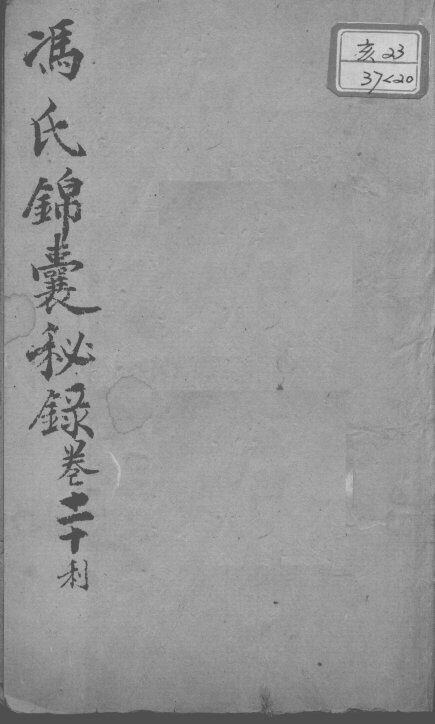 馮氏錦囊秘錄卷十二十利
亥23
37<20